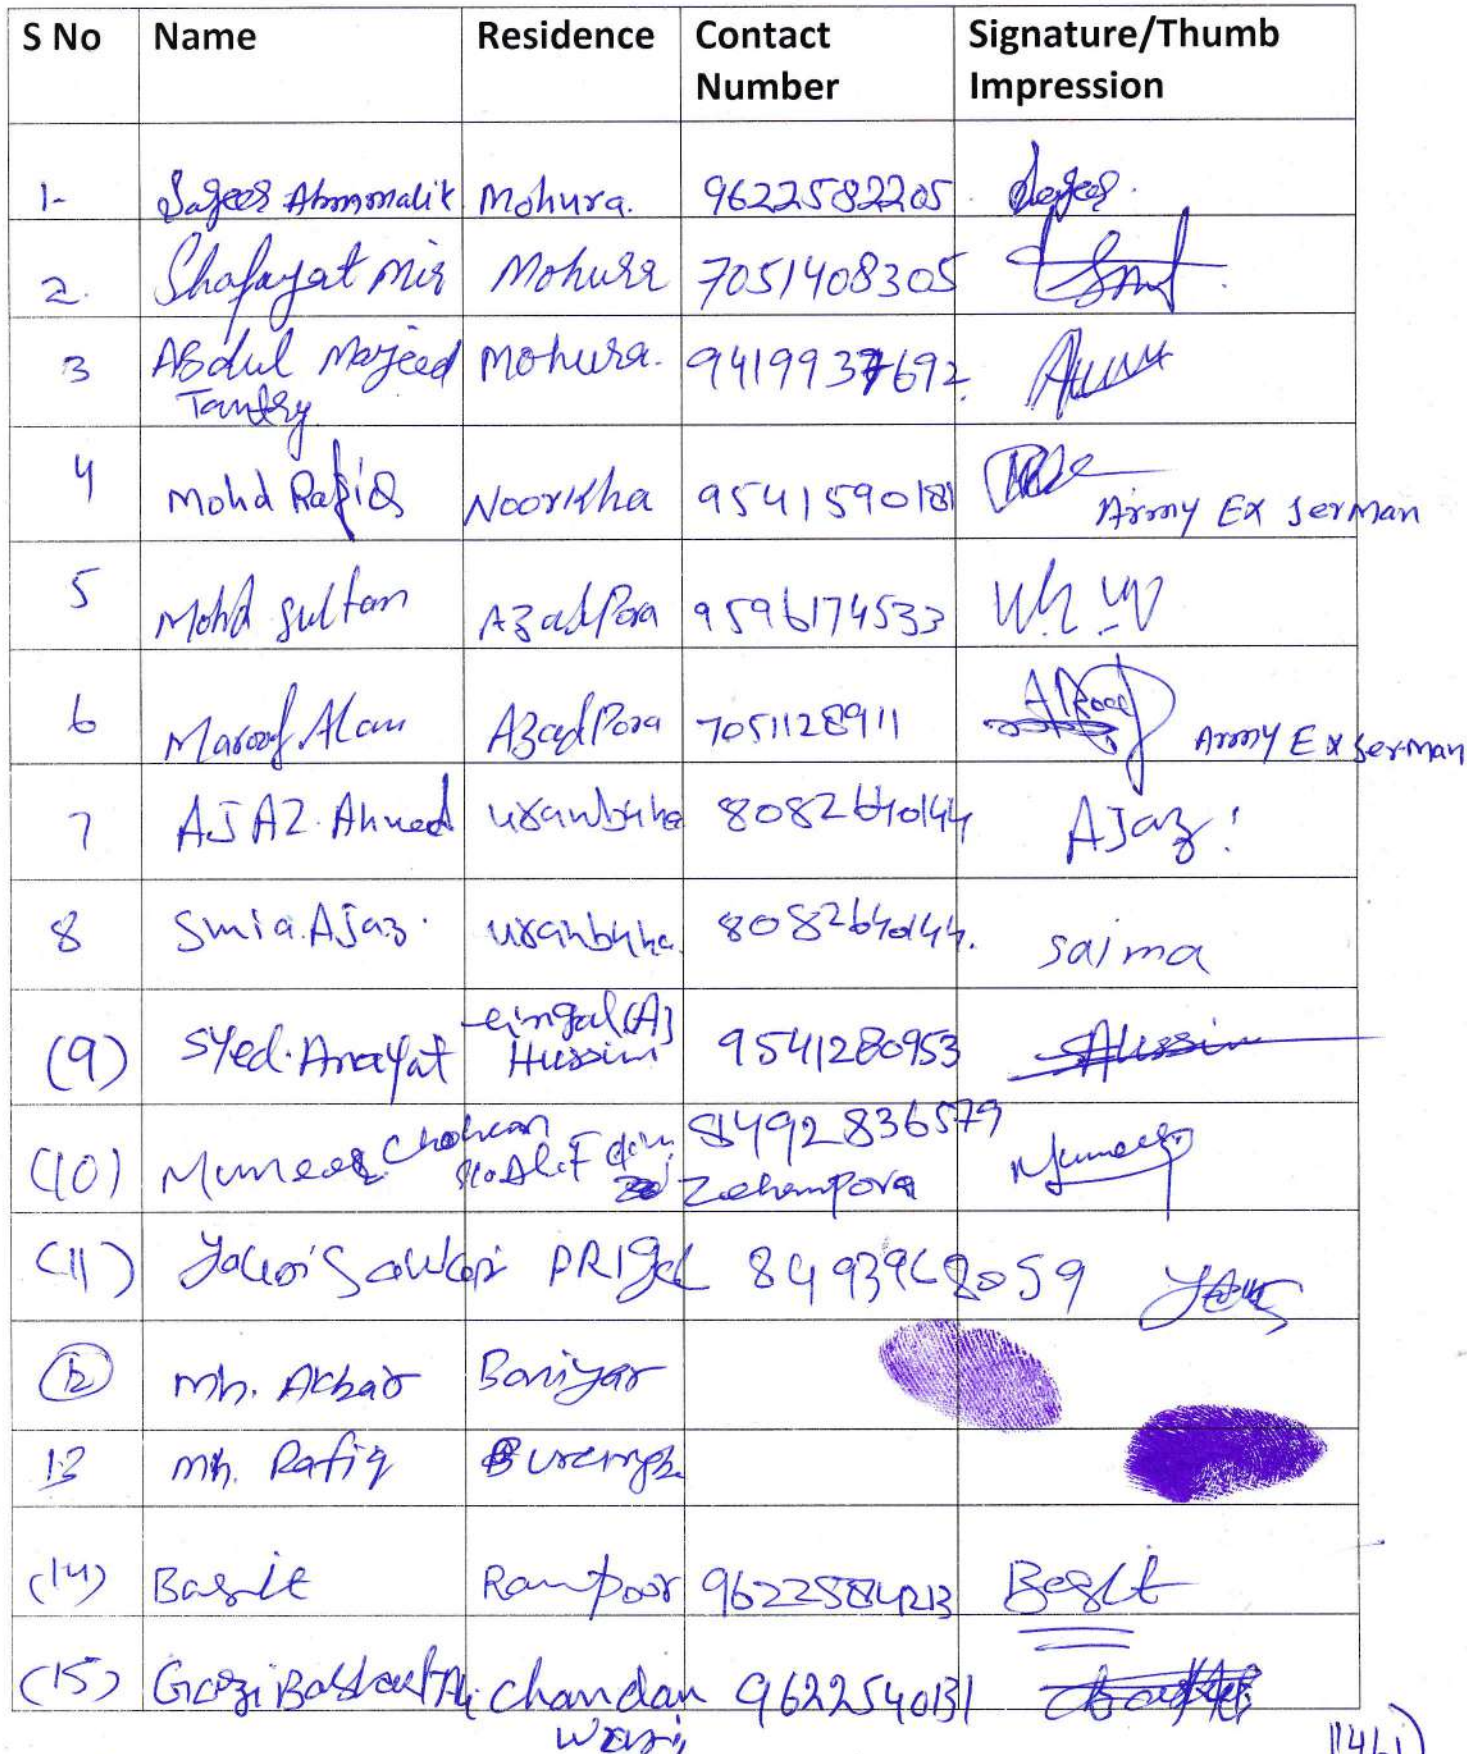 S No Name Residence Contact Number Signature/Thumb Impression
1- Sageer Ahmmalik Mohura. 9622582205 Sageer.
2. Shafayat Mir Mohura 7051408305
3 Abdul Majeed Tantry Mohura. 9419937692
4 Mohd Rafiq Noorkha 9541590181 Army Ex SerMan
5 Mohd Sultan AzadPora 9596174533
6 Maroof Alam AzadPora 7051128911 Army Ex SerMan
7 AJAZ. Ahmed uranbuha 8082640144 AJaz
8 Smia. AJaz. uranbuha. 8082640144. Saima
(9) SYed. Anayat Hussini eingal(A) 9541280953
(10) Muneer Chohan Zehampora 8492836579 Muneer
(11) PRIgal 8493968059
12 Mh. Akbar Boniyar
13 Mh. Rafiq
(14) Basit Rampoor 9622584213 Basit
(15) Gazi Basharat Ali Chandan wari 9622540131